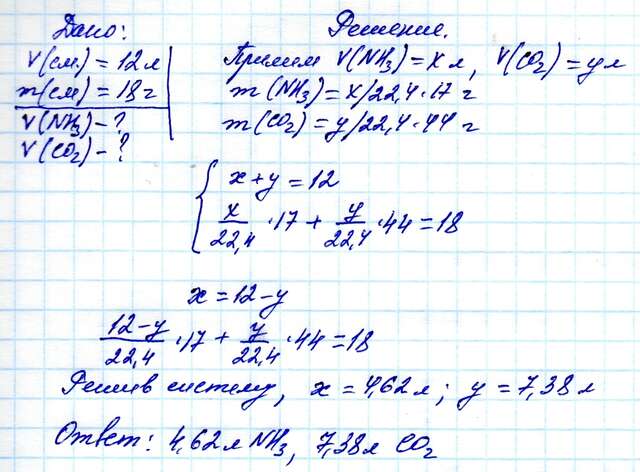 Дано:
V(см) = 12 л
m(см) = 18 г
V(NH₃) - ?
V(CO₂) - ?
Решение.
Примем V(NH₃) = x л, V(CO₂) = y л
m(NH₃) = x/22,4 · 17 г
m(CO₂) = y/22,4 · 44 г
x + y = 12
x/22,4 · 17 + y/22,4 · 44 = 18
x = 12 - y
12-y/22,4 · 17 + y/22,4 · 44 = 18
Решив систему, x = 4,62 л; y = 7,38 л
Ответ: 4,62 л NH₃, 7,38 л CO₂